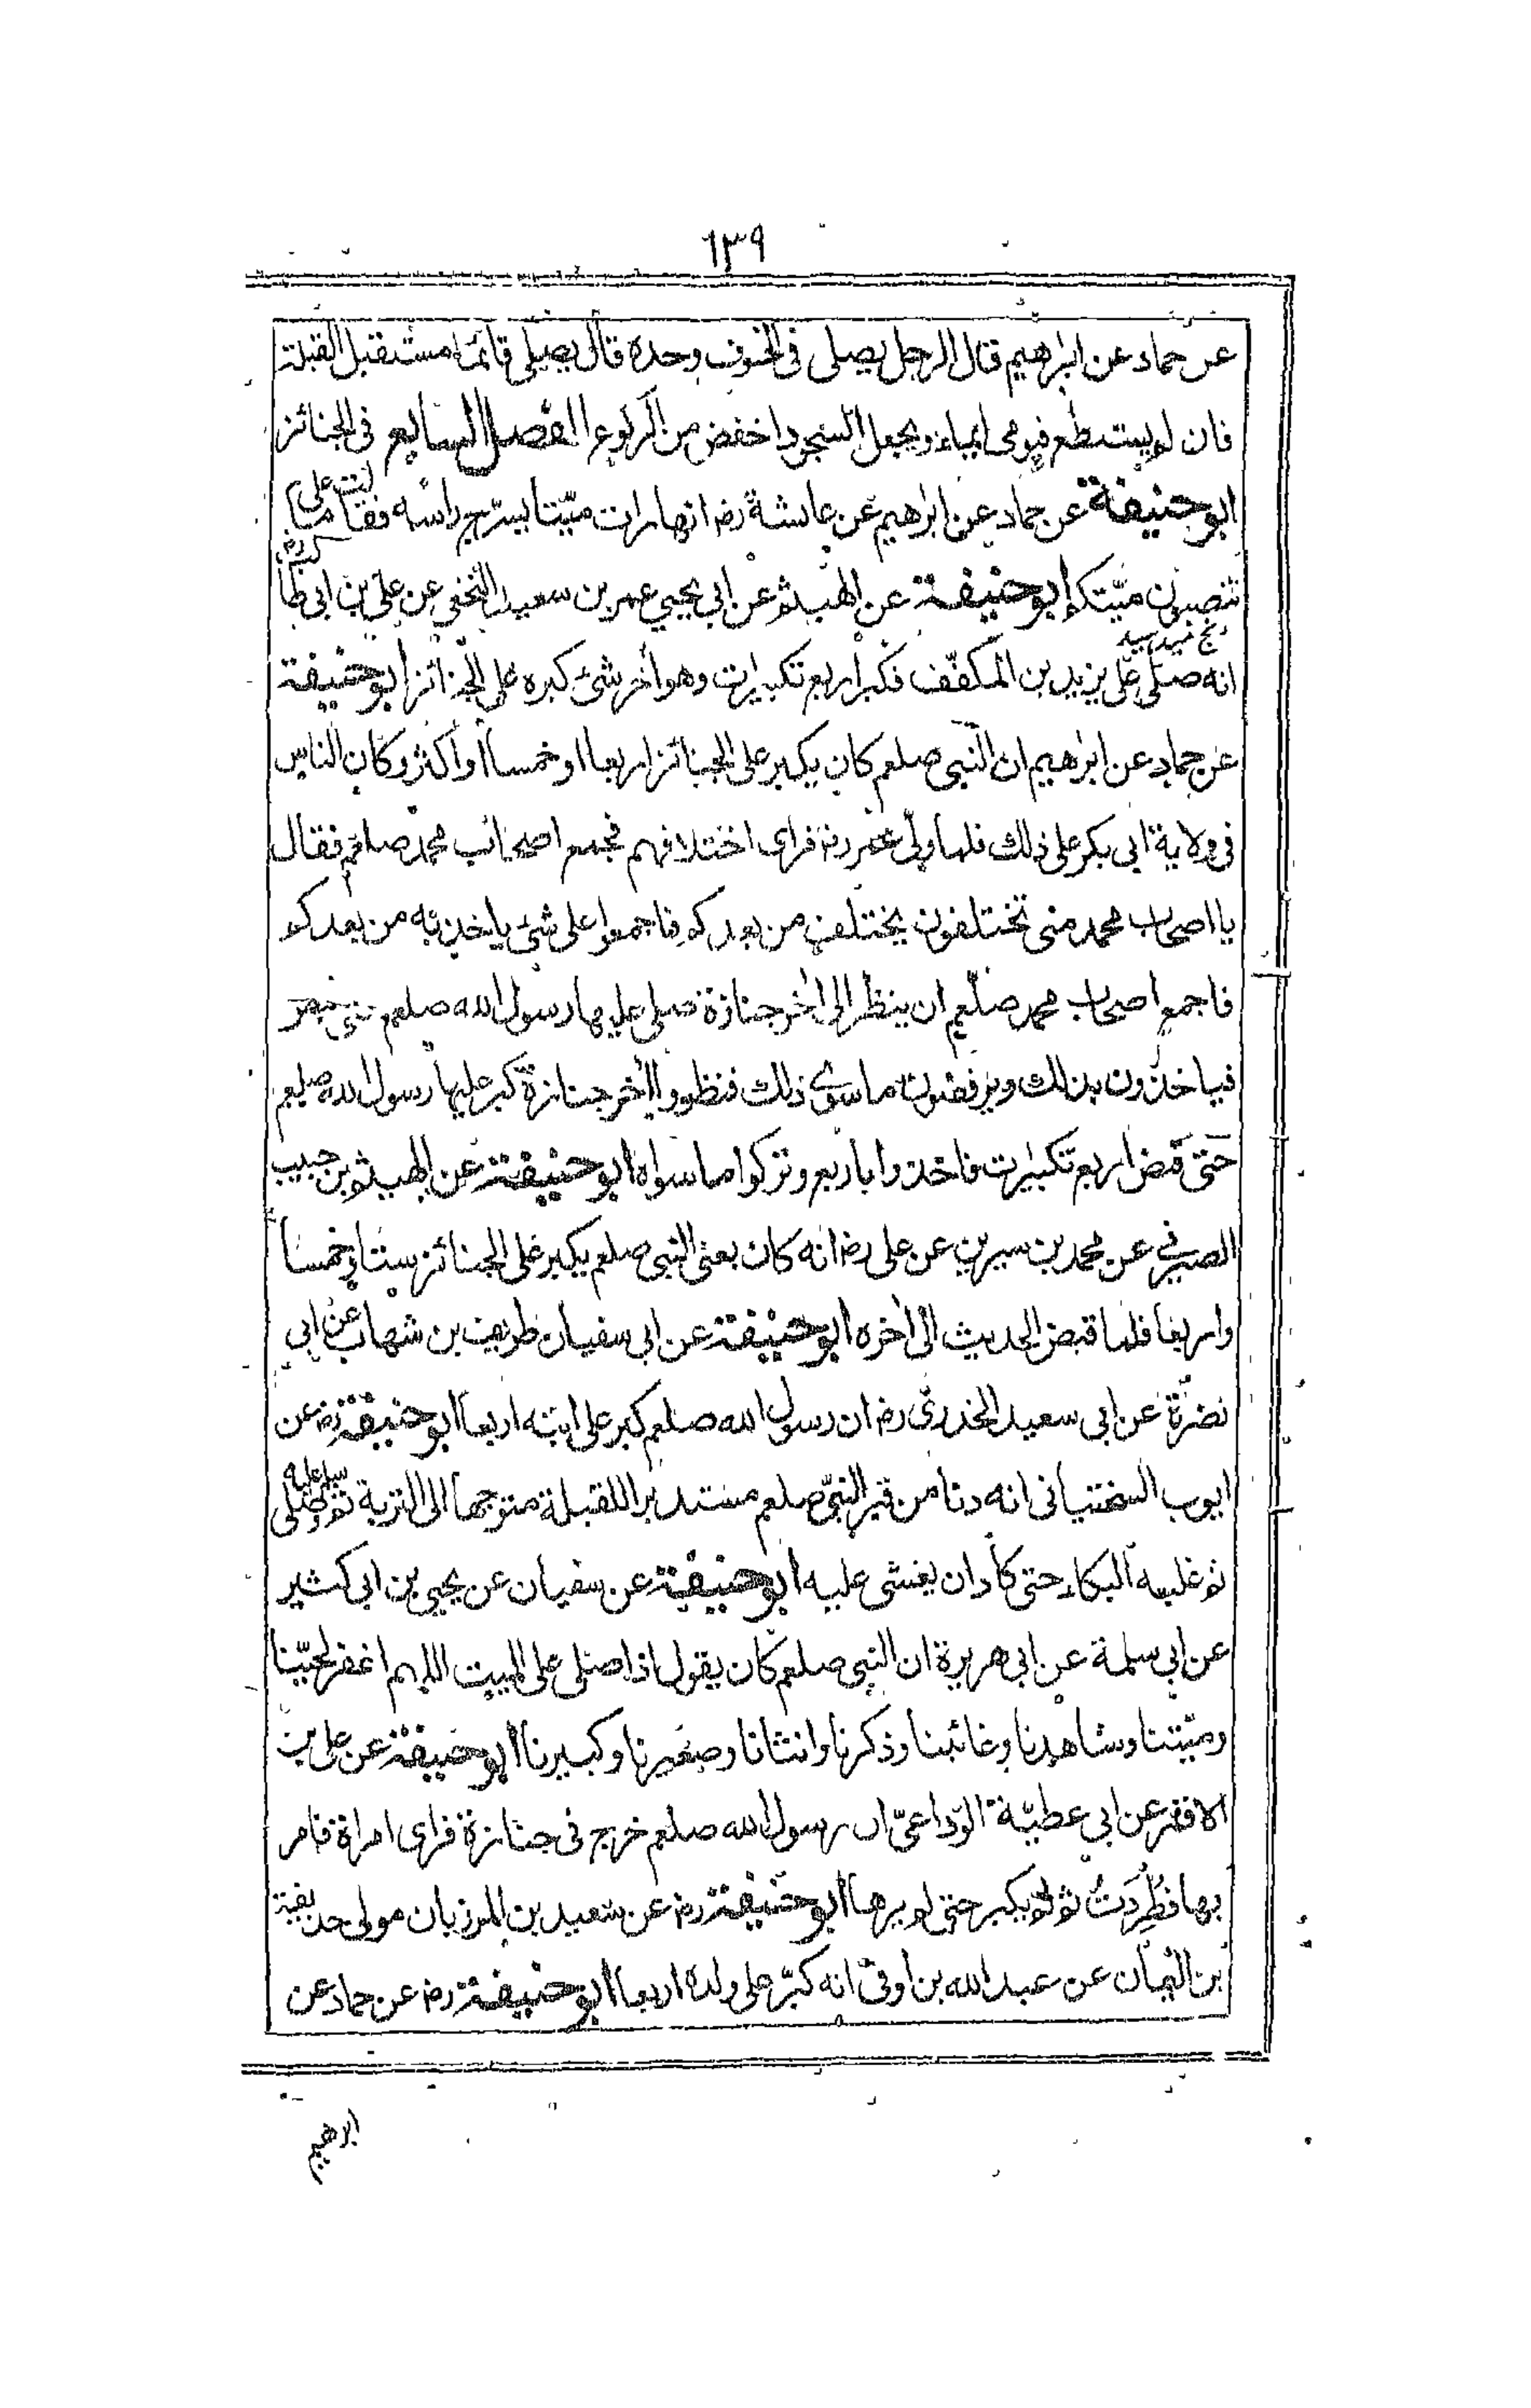 ١٣٩
عن حماد عن ابرهيم قال الرجل يصلى فى الخوف وحده قال يصلى قائما مستقبل القبلة
فان لم يستطع فيومى ايماء ويجعل السجود اخفض من الركوع الفصل السابع فى الجنائز
ابو حنيفة عن حماد عن ابرهيم عن عايشة رضـ انها رات ميتا يسرّح راسه فقالت على ما
تنصبون ميّتكم ابو حنيفة عن الهيثم عن ابى يحيى عمر بن سعيد النخعى عن على بن ابى طا
انه صلى على يزيد بن المكفّف فكبر اربع تكبيرات وهو اخر شئ كبره على الجنائز ابو حنيفة
عن حماد عن ابرهيم ان النبى صلعم كان يكبر على الجنائز اربعا او خمسا او اكثر وكان الناس
فى ولاية ابى بكر على ذلك فلما ولّى عمر رضـ فراى اختلافهم فجمع اصحاب محمد صلعم فقال
يا اصحاب محمد متى تختلفون يختلف من بعدكم فاجمعوا على شئ ياخذ به من بعدكم
فاجمع اصحاب محمد صلعم ان ينظر الى اخر جنازة صلى عليها رسول الله صلعم حتى قبض
فياخذون بذلك ويرفضون ما سوى ذلك فنظروا اخر جنازة كبر عليها رسول الله صلعم
حتى قبض اربع تكبيرات فاخذوا باربع وتركوا ما سواه ابو حنيفة عن الهيثم بن حبيب
الصيرفى عن محمد بن سيرين عن على رضـ انه كان يعنى النبى صلعم يكبر على الجنائز ستا وخمسا
واربعا فلما قبض الحديث الى اخره ابو حنيفة عن ابى سفيان طريف بن شهاب عن ابى
نضرة عن ابى سعيد الخدرى رضـ ان رسول الله صلعم كبر على ابنه اربعا ابو حنيفة رضـ عن
ايوب السختيانى انه دنا من قبر النبىّ صلعم مستدبرا للقبلة متوجها الى التربة ثم صلى
ثم غلبه البكاء حتى كاد ان يغشى عليه ابو حنيفة عن سفيان عن يحيى بن ابى كثير
عن ابى سلمة عن ابى هريرة ان النبى صلعم كان يقول اذا صلى على الميت اللهم اغفر لحيّنا
وميّتنا وشاهدنا وغائبنا وذكرنا وانثانا وصغيرنا وكبيرنا ابو حنيفة عن على بن
الاقمر عن ابى عطيّة الوداعىّ ان رسول الله صلعم خرج فى جنازة فراى امراة فامر
بها فطُرِدَتْ ثم لم يكبر حتى لم يرها ابو حنيفة رضـ عن سعيد بن المرزبان مولى حذيفة
بن اليمان عن عبد الله بن اوفى انه كبّر على ولده اربعا ابو حنيفة رضـ عن حماد عن
ابرهيم